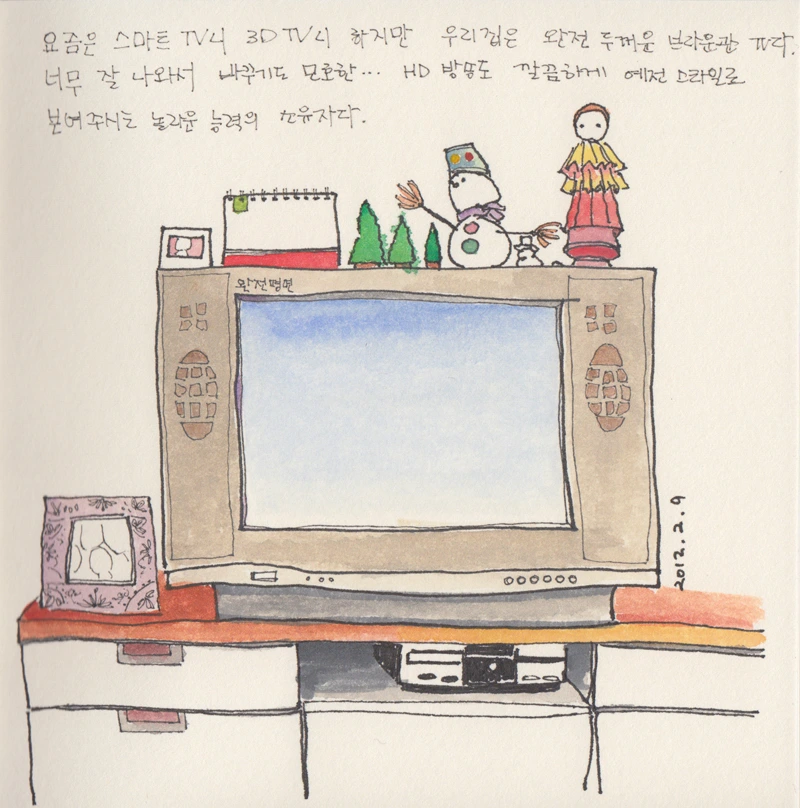 요즘은 스마트 TV니 3D TV니 하지만 우리집은 완전 두꺼운 브라운관 TV다.
너무 잘 나와서 바꾸기도 모호한... HD 방송도 깔끔하게 예전 스타일로
보여주시는 놀라운 능력의 소유자다.
완전평면
2012. 2. 9